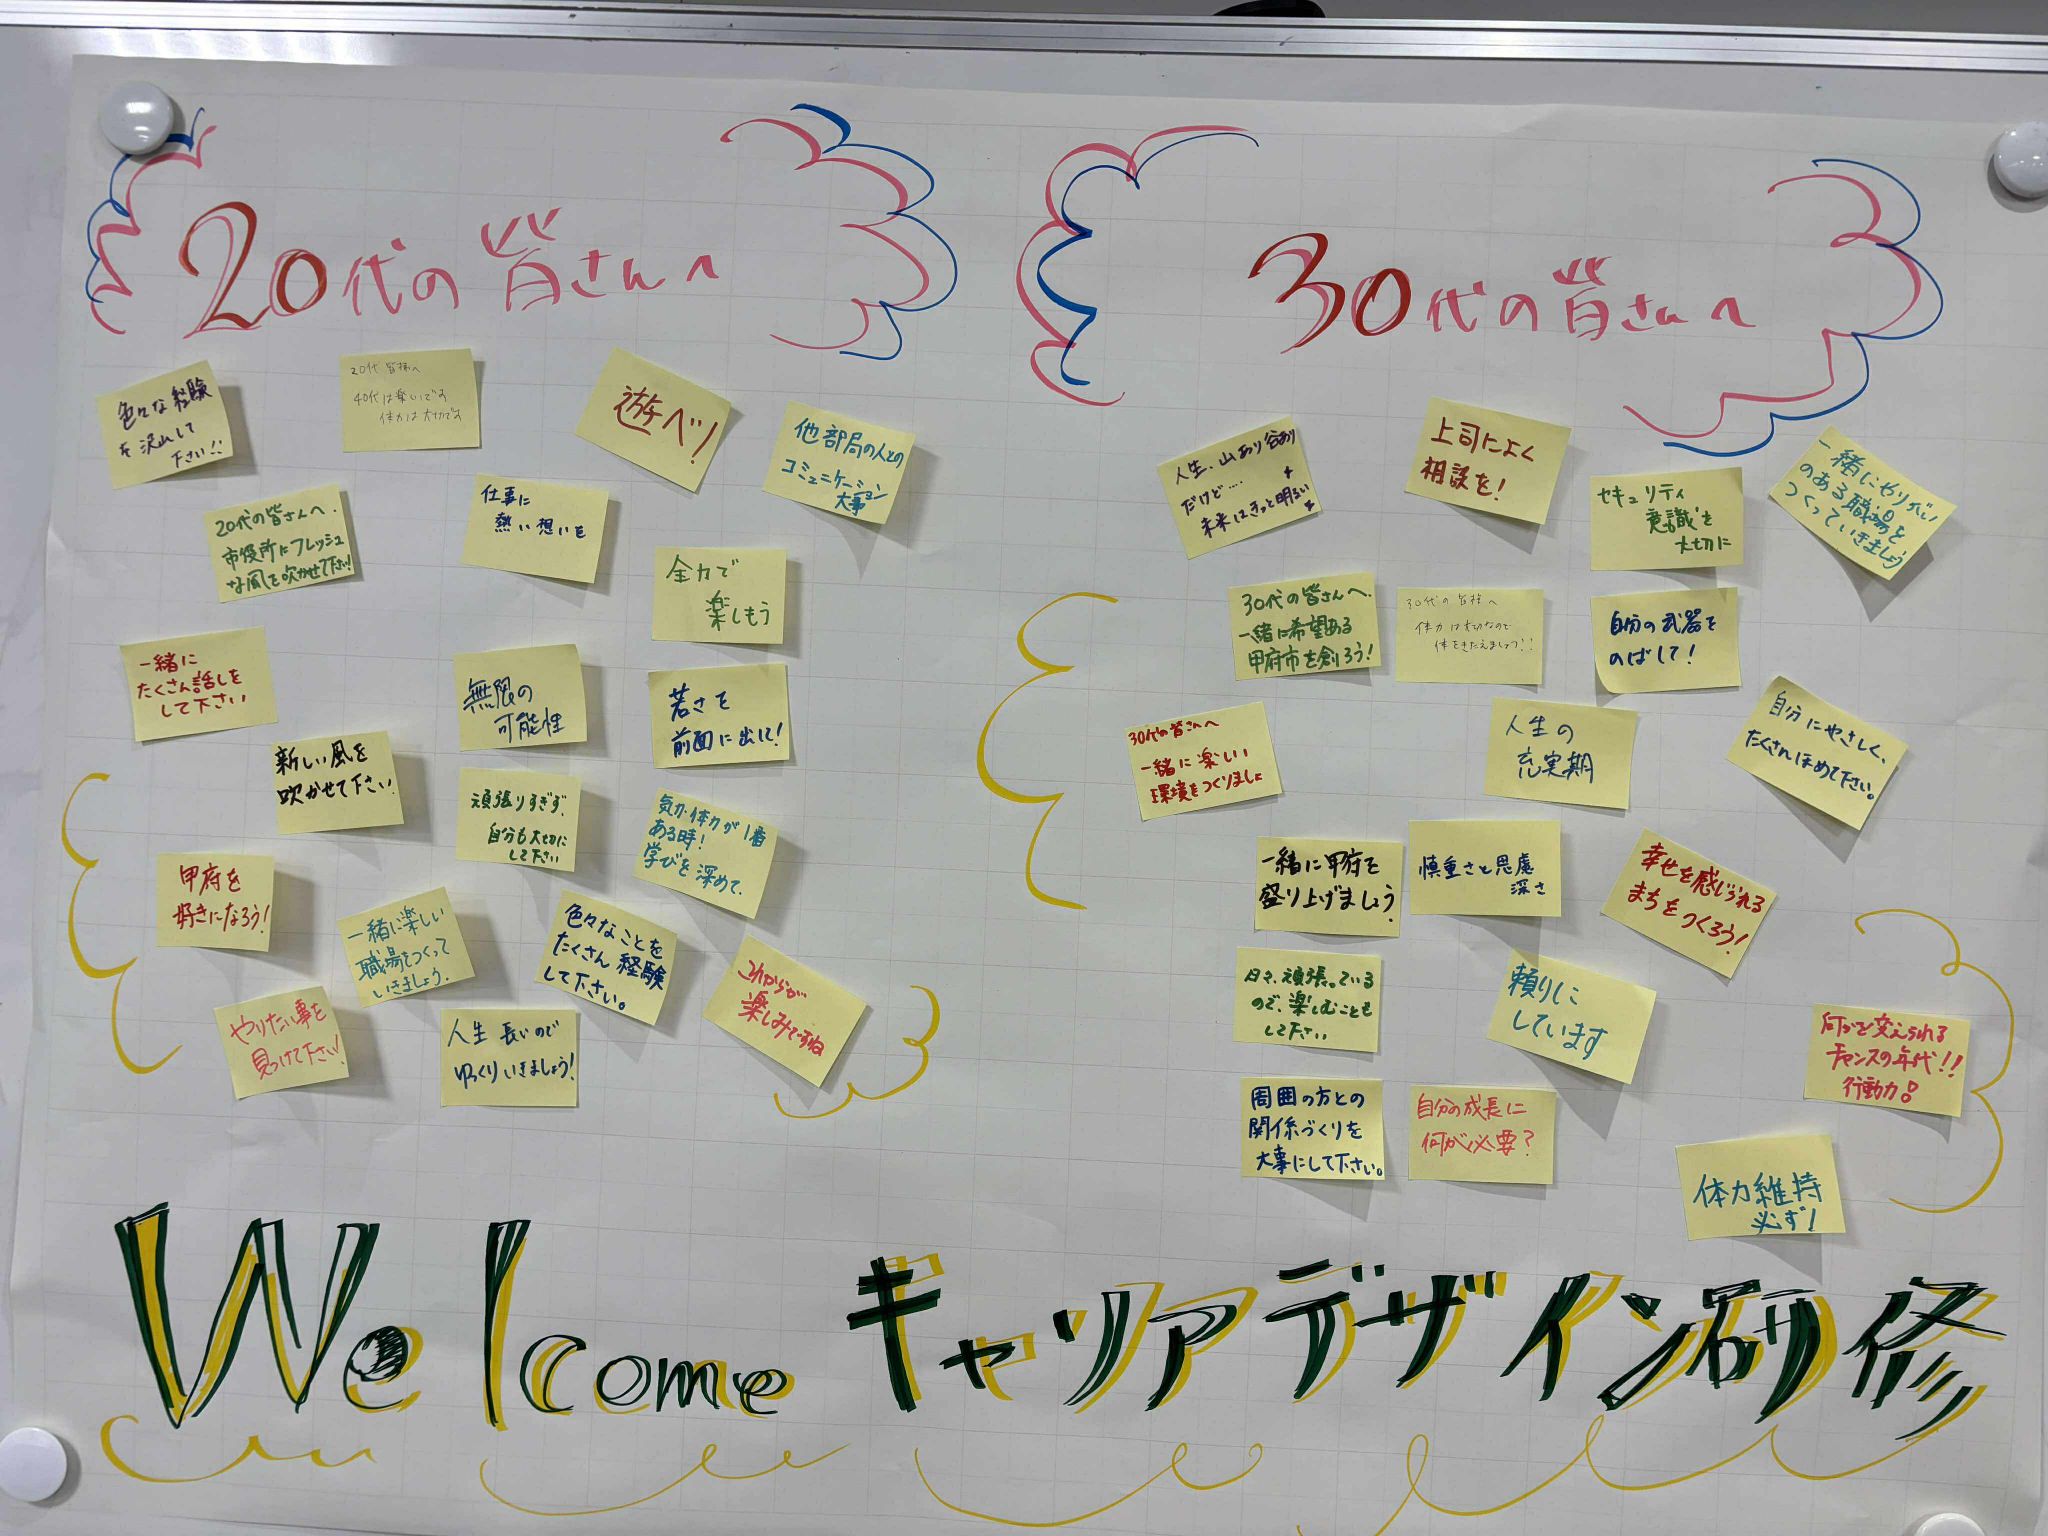 20代の皆さんへ
色々な経験
を沢山して
下さい!!
20代皆様へ
40代は楽しいです
体力は大切です
遊べ!
他部局の人との
コミュニケーション
大事
20代の皆さんへ.
市役所にフレッシュ
な風を吹かせて下さい!
仕事に
熱い想いを
全力で
楽しもう
一緒に
たくさん話しを
して下さい
無限の
可能性
若さを
前面に出して!
新しい風を
吹かせて下さい!
頑張りすぎず、
自分も大切に
して下さい
気力・体力が1番
ある時!
学びを深めて、
甲府を
好きになろう!
一緒に楽しい
職場をつくって
いきましょう.
色々なことを
たくさん経験
して下さい。
これからが
楽しみですね
やりたい事を
見つけて下さい!
人生長いので
ゆっくりいきましょう!
30代の皆さんへ
人生、山あり谷あり
だけど….
未来はきっと明るい
上司によく
相談を!
セキュリティ
意識を
大切に
一緒にやりがい
のある職場を
つくっていきましょう
30代の皆さんへ.
一緒に希望ある
甲府市を創ろう!
30代の皆様へ
体力は大切なので
体をきたえましょう!!
自分の武器を
のばして!
30代の皆さんへ
一緒に楽しい
環境をつくりましょ
人生の
充実期
自分にやさしく、
たくさんほめて下さい。
一緒に甲府を
盛り上げましょう.
慎重さと思慮
深さ
幸せを感じられる
まちをつくろう!
日々、頑張っている
ので、楽しむことも
して下さい
頼りに
しています
何かを変えられる
チャンスの年代!!
行動力!
周囲の方との
関係づくりを
大事にして下さい。
自分の成長に
何が必要?
体力維持
必ず!
Welcome キャリアデザイン研修